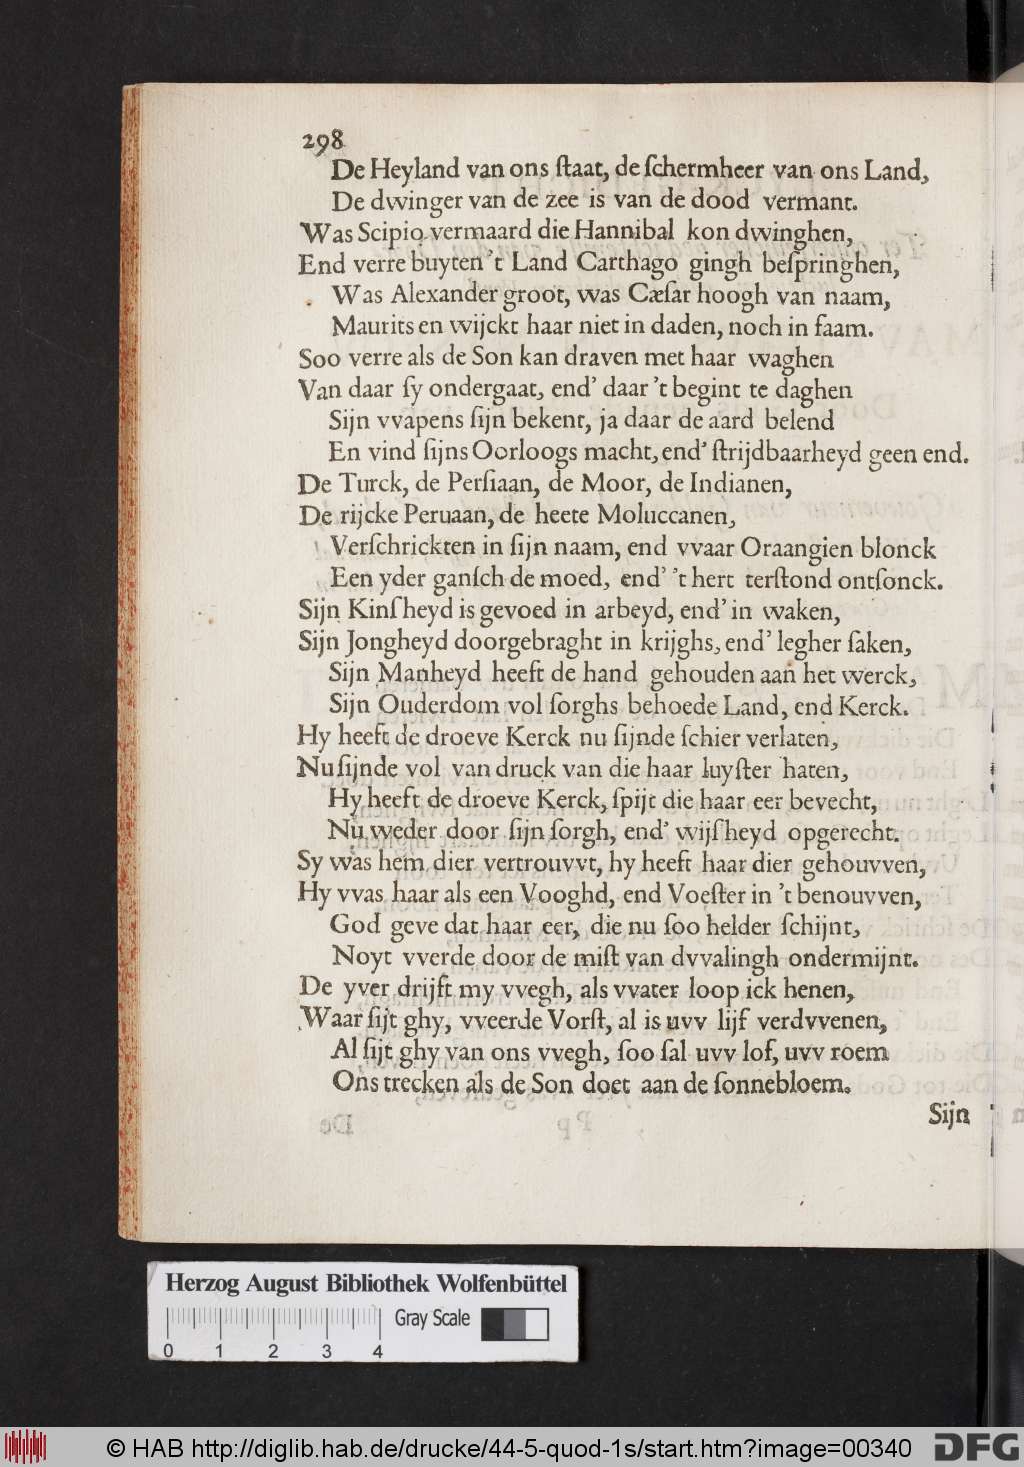 298
De Heyland van ons ſtaat, de ſchermheer van ons Land,
De dwinger van de zee is van de dood vermant.
Was Scipio vermaard die Hannibal kon dwinghen,
End verre buyten 't Land Carthago gingh beſpringhen,
Was Alexander groot, was Cæſar hoogh van naam,
Maurits en wijckt haar niet in daden, noch in faam.
Soo verre als de Son kan draven met haar waghen
Van daar ſy ondergaat, end' daar 't begint te daghen
Sijn vvapens ſijn bekent, ja daar de aard belend
En vind ſijns Oorloogs macht, end' ſtrijdbaarheyd geen end.
De Turck, de Perſiaan, de Moor, de Indianen,
De rijcke Peruaan, de heete Moluccanen,
Verſchrickten in ſijn naam, end vvaar Oraangien blonck
Een yder ganſch de moed, end' 't hert terſtond ontſonck.
Sijn Kinſheyd is gevoed in arbeyd, end' in waken,
Sijn Jongheyd doorgebraght in krijghs, end' legher ſaken,
Sijn Manheyd heeft de hand gehouden aan het werck,
Sijn Ouderdom vol ſorghs behoede Land, end Kerck.
Hy heeft de droeve Kerck nu ſijnde ſchier verlaten,
Nu ſijnde vol van druck van die haar luyſter haten,
Hy heeft de droeve Kerck, ſpijt die haar eer bevecht,
Nu weder door ſijn ſorgh, end' wijſheyd opgerecht.
Sy was hem dier vertrouvvt, hy heeft haar dier gehouvven,
Hy vvas haar als een Vooghd, end Voeſter in 't benouvven,
God geve dat haar eer, die nu ſoo helder ſchijnt,
Noyt vverde door de miſt van dvvalingh ondermijnt.
De yver drijft my vvegh, als vvater loop ick henen,
Waar ſijt ghy, vveerde Vorſt, al is uvv lijf verdvvenen,
Al ſijt ghy van ons vvegh, ſoo ſal uvv lof, uvv roem
Ons trecken als de Son doet aan de ſonnebloem.
Sijn
Herzog August Bibliothek Wolfenbüttel
Gray Scale
0 1 2 3 4
© HAB http://diglib.hab.de/drucke/44-5-quod-1s/start.htm?image=00340
DFG